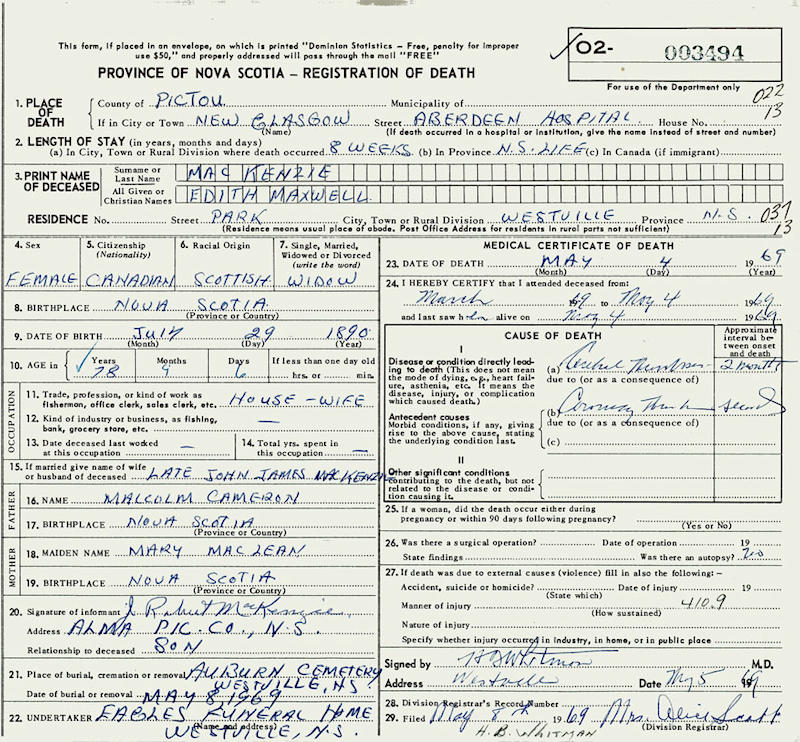 This form, if placed in an envelope, on which is printed "Dominion Statistics — Free, penalty for improper
use $50," and properly addressed will pass through the mail "FREE"
PROVINCE OF NOVA SCOTIA — REGISTRATION OF DEATH
02- 003494
For use of the Department only
022
13
1. PLACE OF DEATH
County of PICTOU Municipality of
If in City or Town NEW GLASGOW Street ABERDEEN HOSPITAL House No.
(Name) (If death occurred in a hospital or institution, give the name instead of street and number)
2. LENGTH OF STAY (in years, months and days)
(a) In City, Town or Rural Division where death occurred 8 WEEKS (b) In Province N.S. LIFE (c) In Canada (if immigrant)
3. PRINT NAME OF DECEASED
Surname or Last Name MAC KENZIE
All Given or Christian Names EDITH MAXWELL
RESIDENCE No. Street PARK City, Town or Rural Division WESTVILLE Province N.S. 037
13
(Residence means usual place of abode. Post Office Address for residents in rural parts not sufficient)
4. Sex FEMALE
5. Citizenship (Nationality) CANADIAN
6. Racial Origin SCOTTISH
7. Single, Married, Widowed or Divorced (write the word) WIDOW
8. BIRTHPLACE NOVA SCOTIA
(Province or Country)
9. DATE OF BIRTH JULY 29 1890
(Month) (Day) (Year)
10. AGE in Years 78 Months 9 Days 6 If less than one day old hrs. or min.
OCCUPATION
11. Trade, profession or kind of work as fisherman, office clerk, sales clerk, etc. HOUSE-WIFE
12. Kind of industry or business, as fishing, bank, grocery store, etc. —
13. Date deceased last worked at this occupation —
14. Total yrs. spent in this occupation —
15. If married give name of wife or husband of deceased LATE JOHN JAMES MACKENZIE
FATHER
16. NAME MALCOLM CAMERON
17. BIRTHPLACE NOVA SCOTIA
(Province or Country)
MOTHER
18. MAIDEN NAME MARY MACLEAN
19. BIRTHPLACE NOVA SCOTIA
(Province or Country)
20. Signature of informant J. Robert McKenzie
Address ALMA PIC. CO., N.S.
Relationship to deceased SON
21. Place of burial, cremation or removal AUBURN CEMETERY
WESTVILLE, NS
Date of burial or removal MAY 8, 1969
22. UNDERTAKER EAGLES FUNERAL HOME
(Name and address)
WESTVILLE, N.S.
MEDICAL CERTIFICATE OF DEATH
23. DATE OF DEATH MAY 4 1969
(Month) (Day) (Year)
24. I HEREBY CERTIFY that I attended deceased from:
March 1969 to May 4 1969
and last saw her alive on May 4 1969
CAUSE OF DEATH
Approximate interval between onset and death
I
Disease or condition directly leading to death (This does not mean the mode of dying, e.g., heart failure, asthenia, etc. It means the disease, injury, or complication which caused death.)
(a) Cerebral Thrombosis 2 months
due to (or as a consequence of)
Antecedent causes
Morbid conditions, if any, giving rise to the above cause, stating the underlying condition last.
(b) Coronary seconds
due to (or as a consequence of)
(c)
II
Other significant conditions contributing to the death, but not related to the disease or condition causing it.
25. If a woman, did the death occur either during pregnancy or within 90 days following pregnancy?
(Yes or No)
26. Was there a surgical operation? Date of operation 19
State findings Was there an autopsy?
27. If death was due to external causes (violence) fill in also the following:
Accident, suicide or homicide? Date of injury 19
(State which)
Manner of injury 410.9
(How sustained)
Nature of injury
Specify whether injury occurred in industry, in home, or in public place
Signed by H B Whitman M.D.
Address Westville Date May 5 1969
28. Division Registrar's Record Number
29. Filed May 8th 1969 Mrs. Alice Scott
(Division Registrar)
H.B. WHITMAN